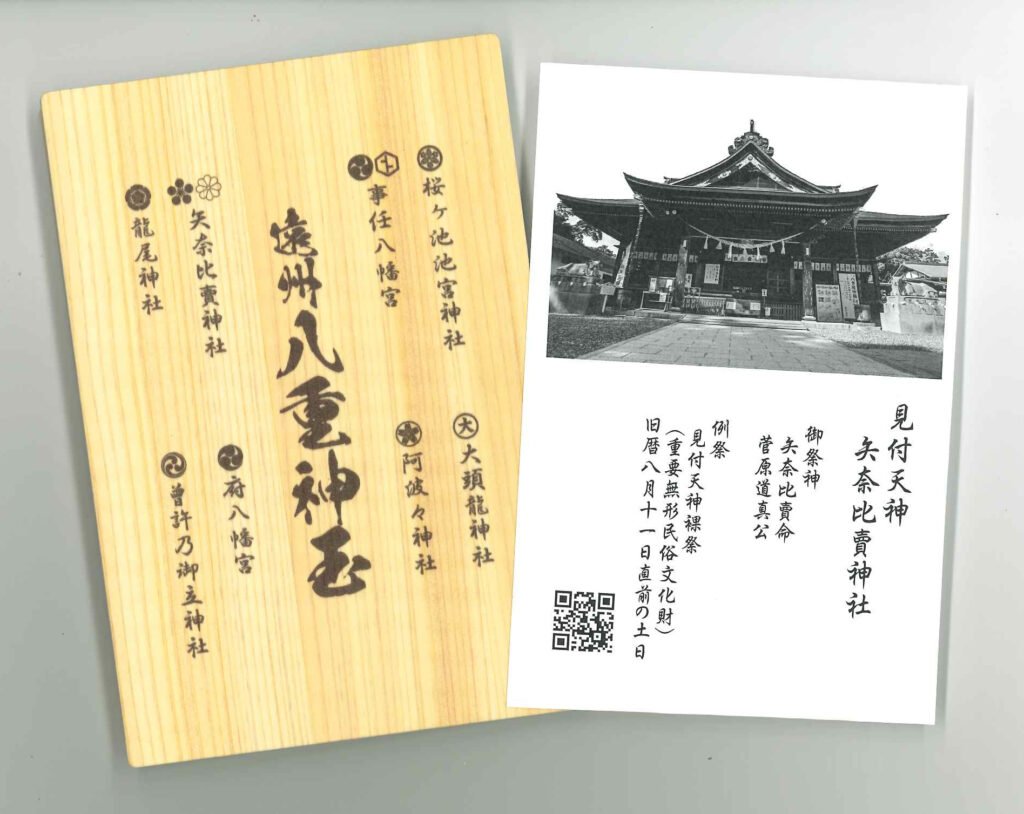 桜ヶ池池宮神社
事任八幡宮
遠州八重神玉
矢奈比賣神社
龍尾神社
大頭龍神社
阿波々神社
府八幡宮
曽許乃御立神社
見付天神
矢奈比賣神社
御祭神
矢奈比賣命
菅原道真公
例祭
見付天神裸祭
（重要無形民俗文化財）
旧暦八月十一日直前の土日